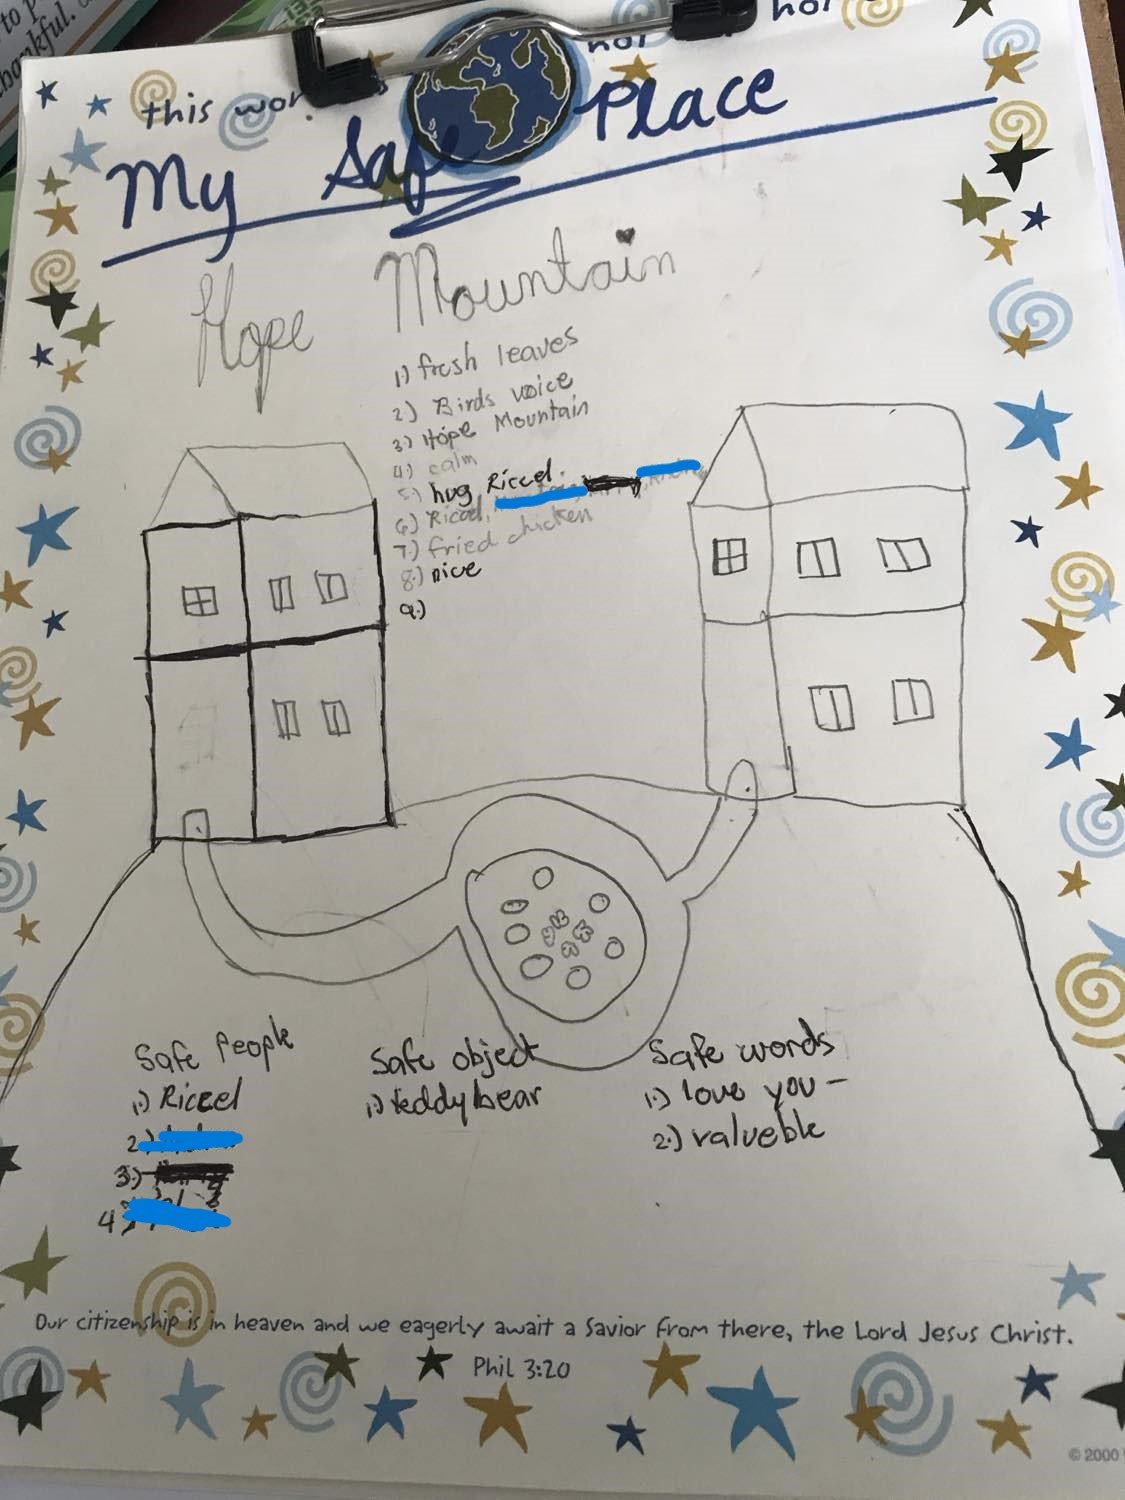 to p
thankful.
not
not
this wor
My Safe Place
Hope Mountain
1.) fresh leaves
2.) Birds voice
3.) Hope Mountain
4.) calm
5.) hug Riccel.
6.) Riccel,
7.) fried chicken
8.) nice
9.)
Safe People
1.) Riccel
2.)
3.)
4
Safe object
1.) teddy bear
Safe words
1.) love you -
2.) valueble
Our citizenship is in heaven and we eagerly await a Savior from there, the Lord Jesus Christ.
Phil 3:20
© 2000